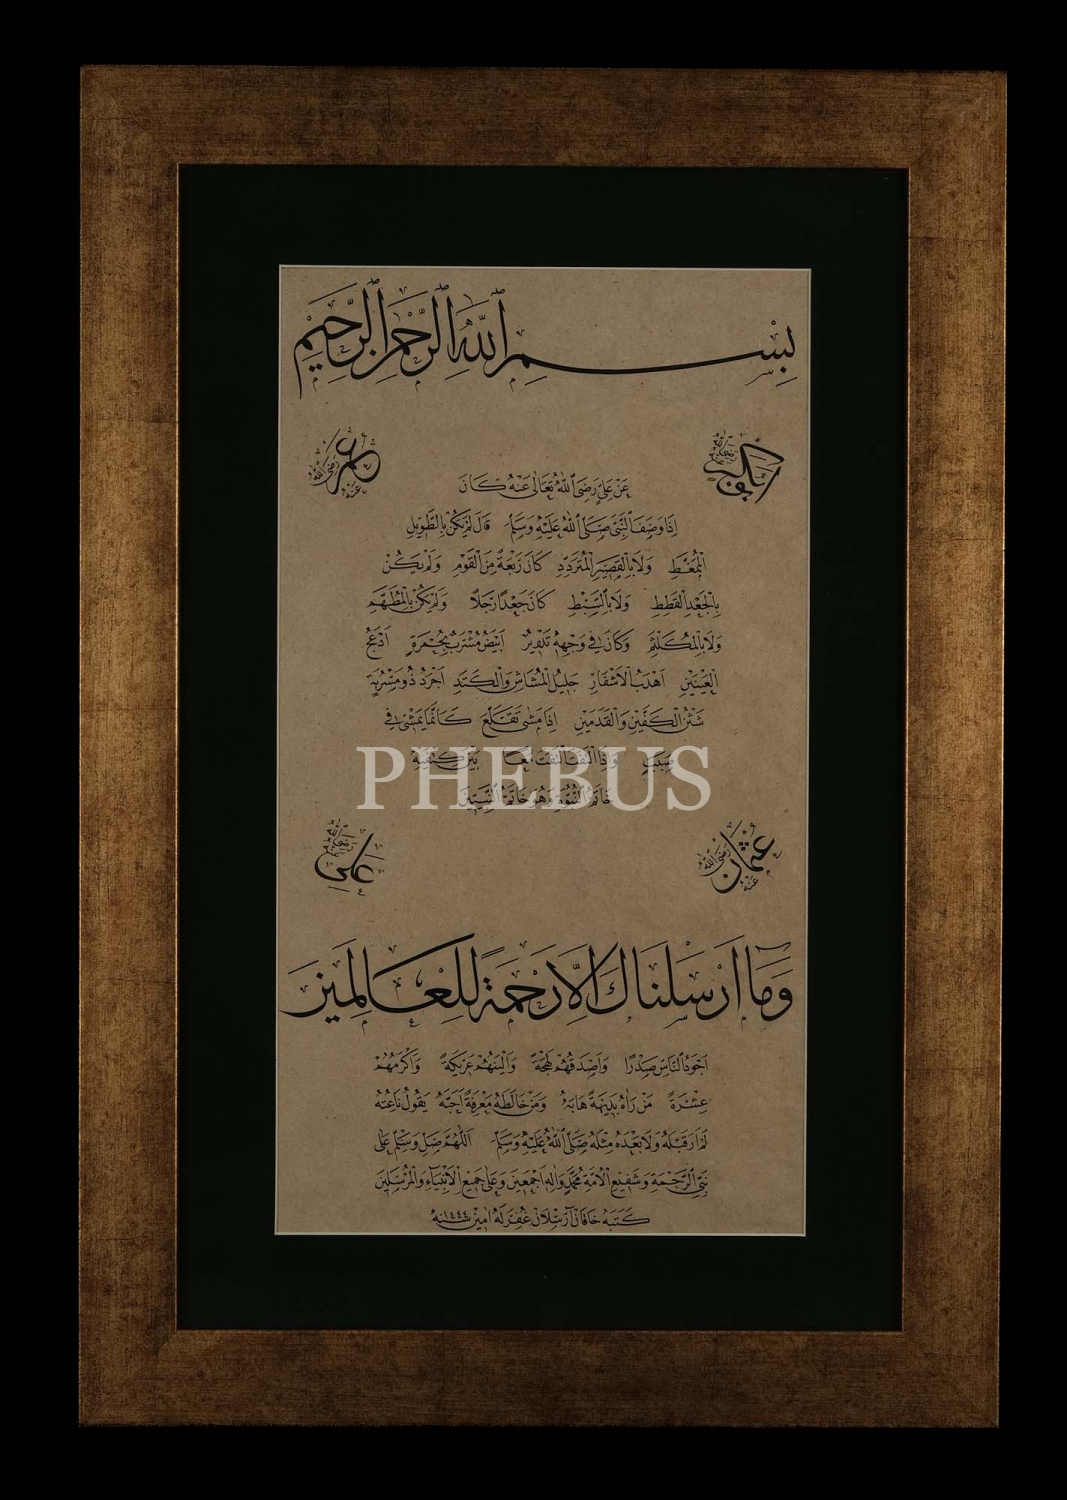 بِسْمِ اللّٰهِ الرَّحْمٰنِ الرَّحِيمِ
ابوبكر رضي الله عنه
عمر رضي الله عنه
عَنْ عَلِيٍّ رَضِيَ اللّٰهُ تَعَالٰى عَنْهُ كَانَ
اِذَا وَصَفَ النَّبِيَّ صَلَّى اللّٰهُ عَلَيْهِ وَسَلَّمَ قَالَ لَمْ يَكُنْ بِالطَّوِيلِ
الْمُمَغَّطِ وَلَا بِالْقَصِيرِ الْمُتَرَدِّدِ كَانَ رَبْعَةً مِنَ الْقَوْمِ وَلَمْ يَكُنْ
بِالْجَعْدِ الْقَطَطِ وَلَا بِالسَّبْطِ كَانَ جَعْدًا رَجِلًا وَلَمْ يَكُنْ بِالْمُطَهَّمِ
وَلَا بِالْمُكَلْثَمِ وَكَانَ فِي وَجْهِهِ تَدْوِيرٌ اَبْيَضُ مُشْرَبٌ بِحُمْرَةٍ اَدْعَجُ
الْعَيْنَيْنِ اَهْدَبُ الْاَشْفَارِ جَلِيلُ الْمُشَاشِ وَالْكَتَدِ اَجْرَدُ ذُو مَسْرُبَةٍ
شَثْنُ الْكَفَّيْنِ وَالْقَدَمَيْنِ اِذَا مَشٰى تَقَلَّعَ كَاَنَّمَا يَمْشِي فِي
صَبَبٍ وَاِذَا الْتَفَتَ الْتَفَتَ مَعًا بَيْنَ كَتِفَيْهِ
PHEBUS
خَاتَمُ النُّبُوَّةِ وَهُوَ خَاتَمُ النَّبِيِّينَ
عثمان رضي الله عنه
علي رضي الله عنه
وَمَا اَرْسَلْنَاكَ اِلَّا رَحْمَةً لِلْعَالَمِينَ
اَجْوَدُ النَّاسِ صَدْرًا وَاَصْدَقُهُمْ لَهْجَةً وَاَلْيَنُهُمْ عَرِيكَةً وَاَكْرَمُهُمْ
عِشْرَةً مَنْ رَاٰهُ بَدِيهَةً هَابَهُ وَمَنْ خَالَطَهُ مَعْرِفَةً اَحَبَّهُ يَقُولُ نَاعِتُهُ
لَمْ اَرَ قَبْلَهُ وَلَا بَعْدَهُ مِثْلَهُ صَلَّى اللّٰهُ عَلَيْهِ وَسَلَّمَ اَللّٰهُمَّ صَلِّ وَسَلِّمْ عَلٰى
نَبِيِّ الرَّحْمَةِ وَشَفِيعِ الْاُمَّةِ مُحَمَّدٍ وَاٰلِهِ اَجْمَعِينَ وَعَلٰى جَمِيعِ الْاَنْبِيَاءِ وَالْمُرْسَلِينَ
كَتَبَهُ خَاقَانْ آرْسْلَانْ غُفِرَ لَهُ اٰمِينْ سَنَهْ ١٤٤٤